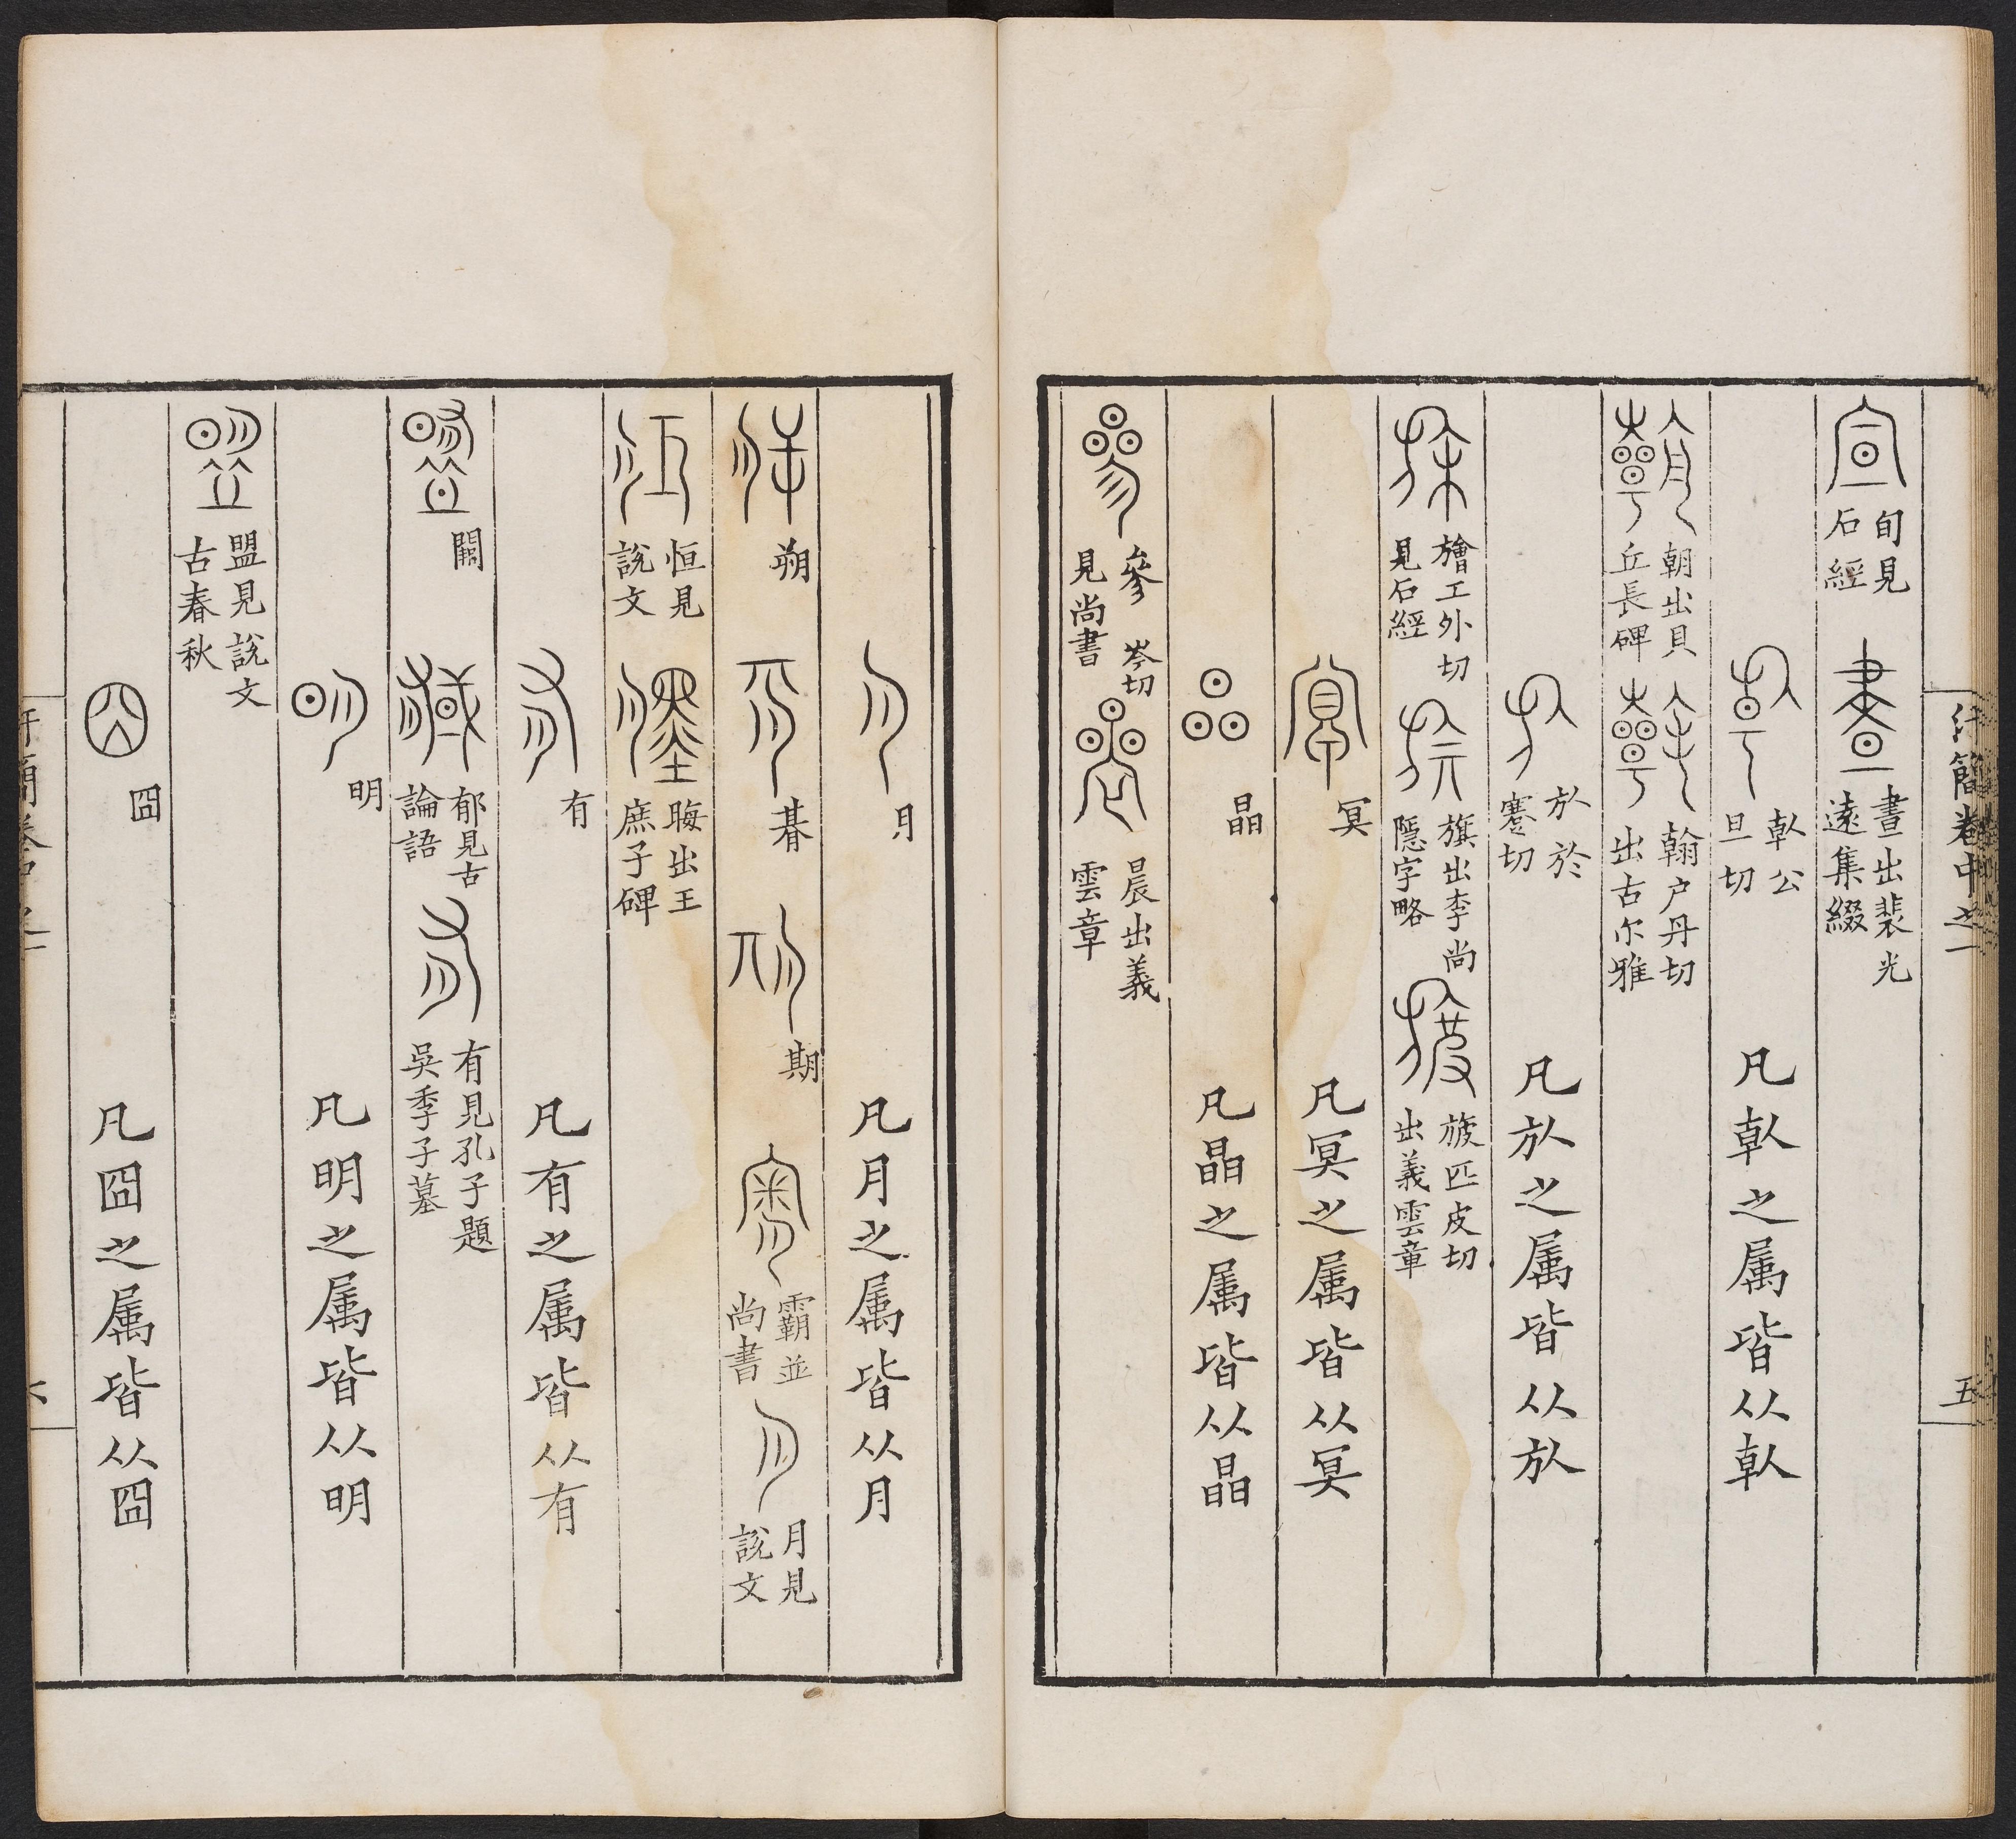 汗簡卷中之一
五
旬見石經 晝出裴光遠集綴
倝公旦切 凡倝之属皆从倝
朝出貝丘長碑 翰户丹切出古尔雅
㫃於蹇切 凡㫃之属皆从㫃
旝工外切見石經 旗出李尚隱字略 旇匹皮切出義雲章
冥 凡冥之属皆从冥
晶 凡晶之属皆从晶
參岑切見尚書 晨出義雲章
月 凡月之属皆从月
朔 朞 期 霸並尚書 月見說文
恒見說文 晦出王庶子碑
有 凡有之属皆从有
闕 郁見古論語 有見孔子題吳季子墓
明 凡明之属皆从明
盟見說文古春秋
囧 凡囧之属皆从囧